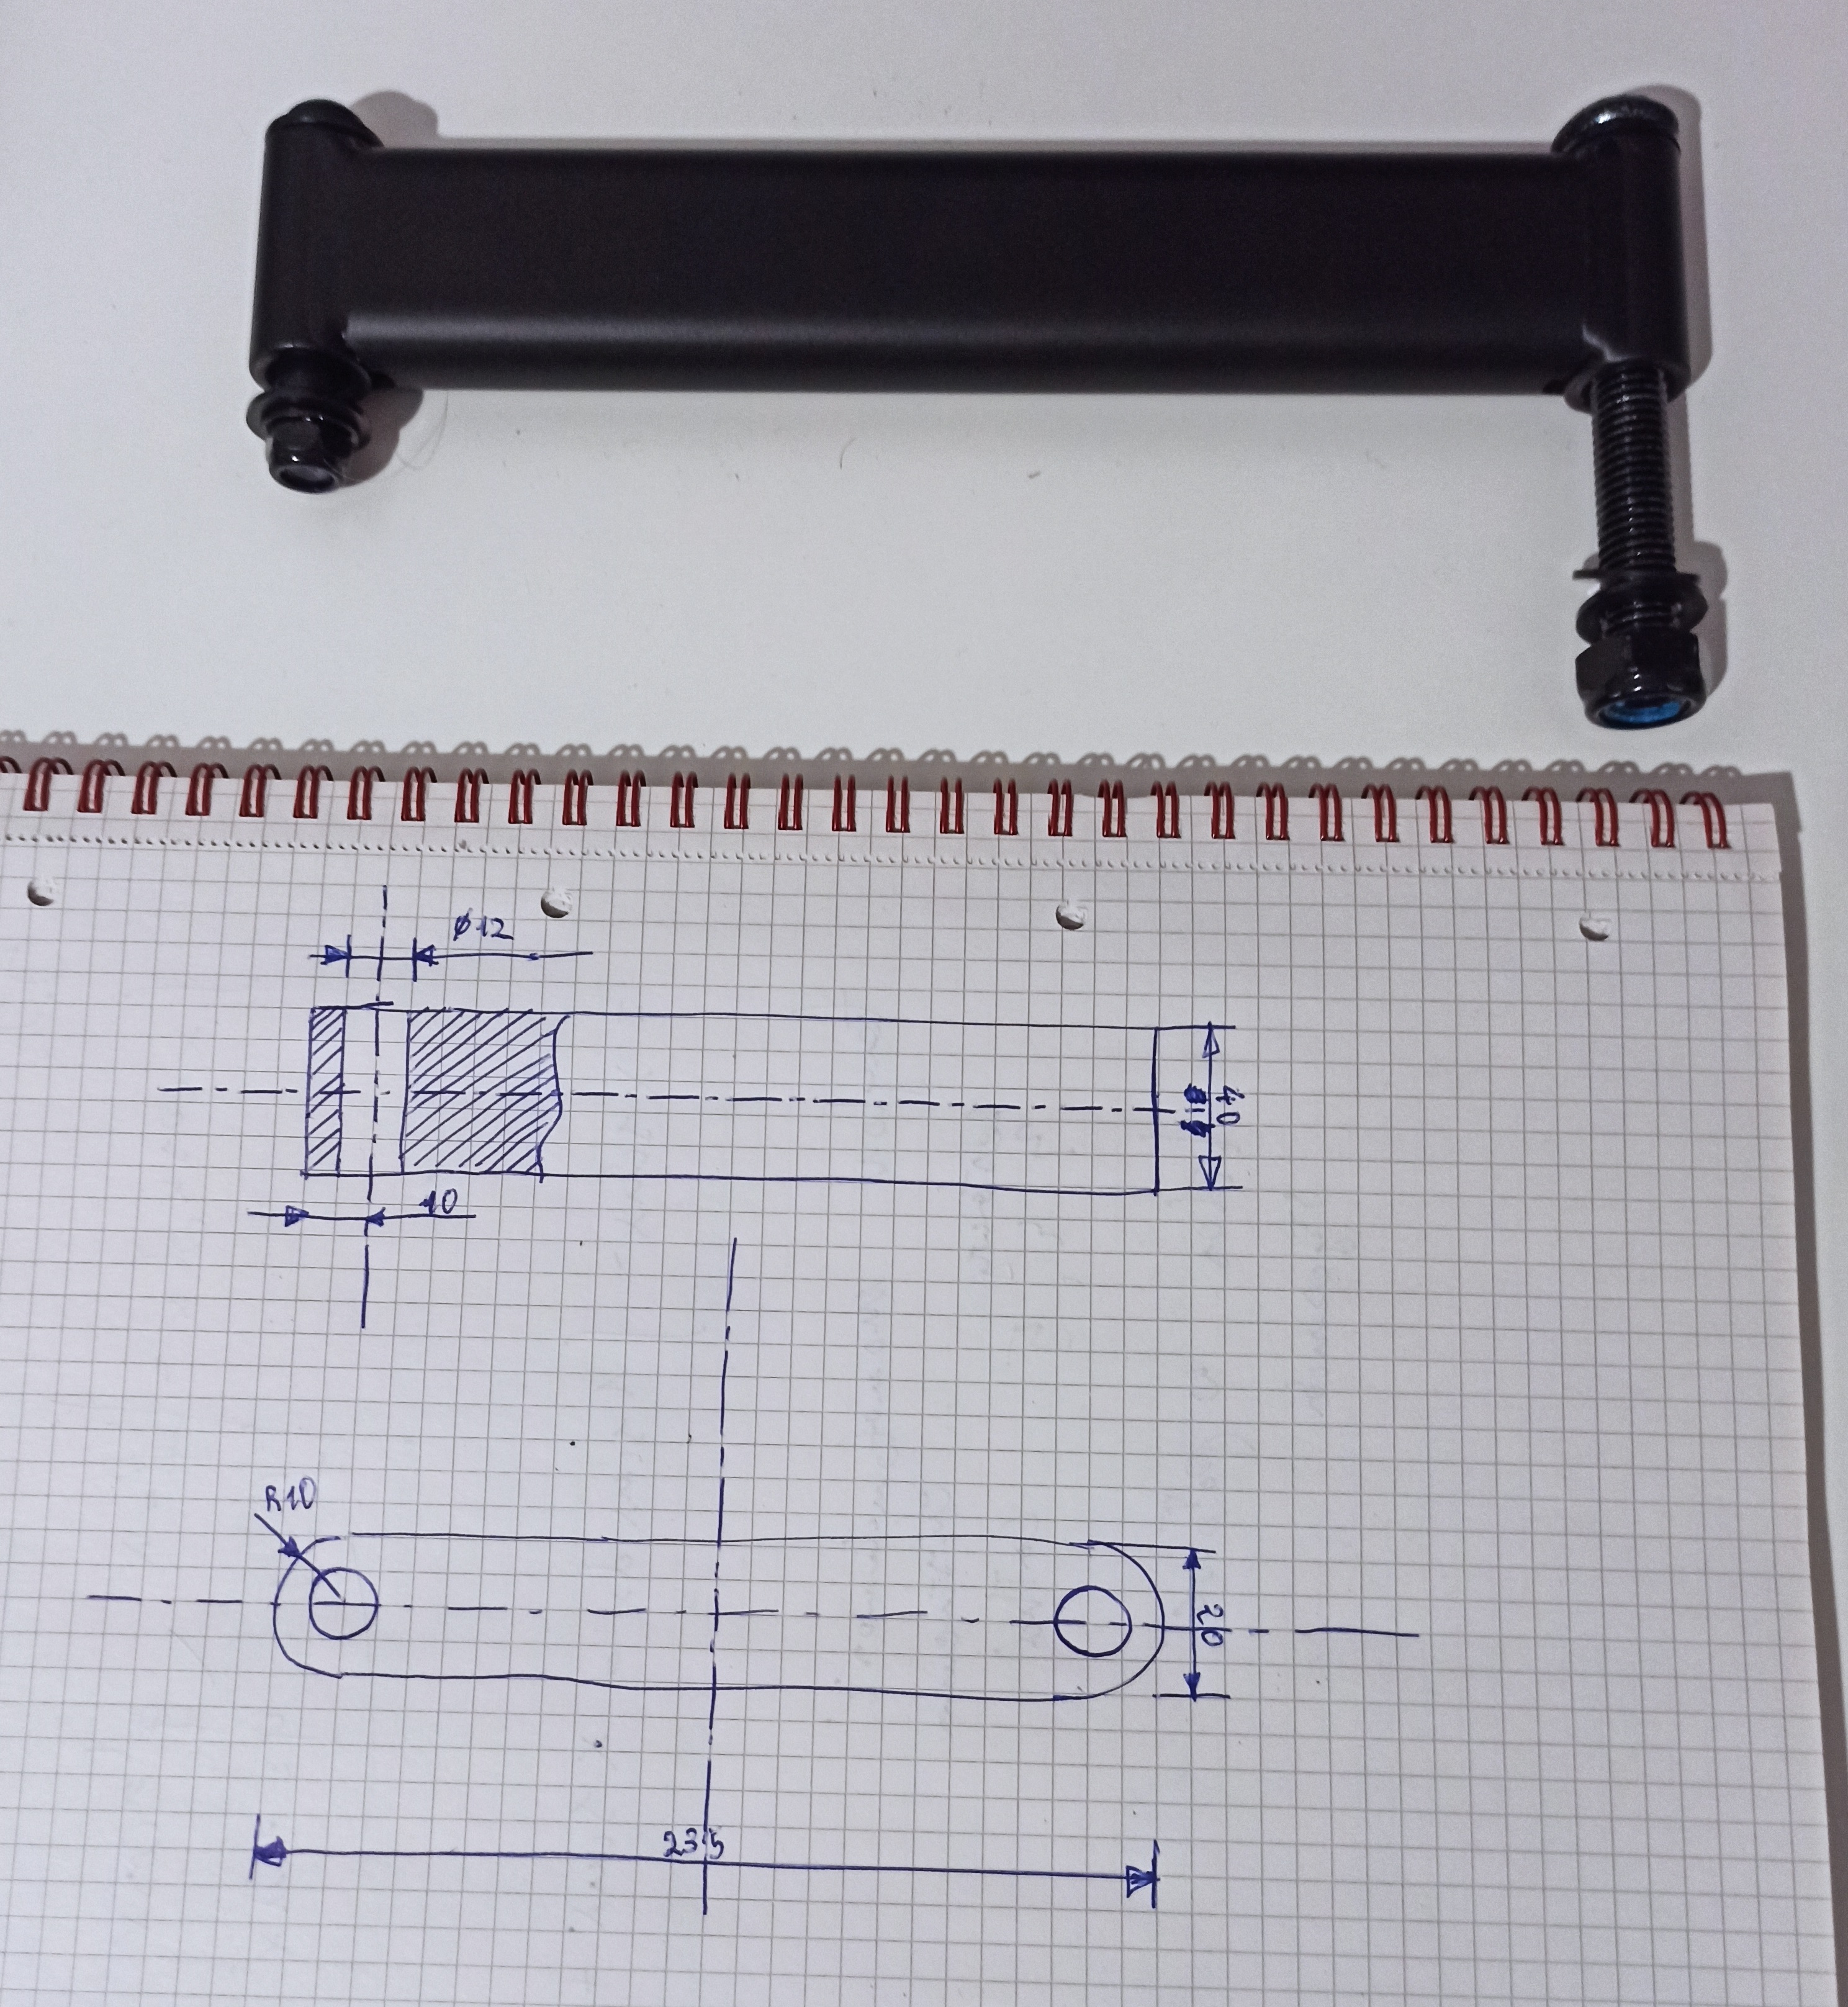 ø12
40
10
R10
20
235